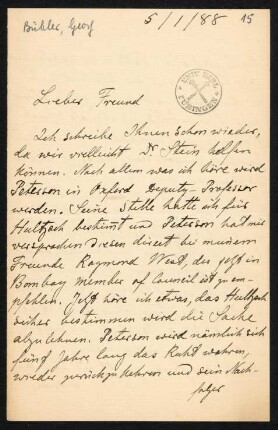 Bühler, Georg
5/1/88 15
UNIV. BIBL. TÜBINGEN
Lieber Freund
Ich schreibe Ihnen schon wieder,
da wir vielleicht Dr. Stein helfen
können. Nach allem was ich höre wird
Peterson in Oxford Deputy-Professor
werden. Seine Stelle hatte ich für
Hultzsch bestimmt und Peterson hat mir
versprochen diesen direct bei meinem
Freunde Raymond West, der jetzt in
Bombay member of Council ist zu em-
pfehlen. Jetzt höre ich etwas, das Hultzsch
sicher bestimmen wird die Sache
abzulehnen. Peterson wird nämlich sich
fünf Jahre lang das Recht wahren,
wieder zurückzukehren und sein Nach-
folger